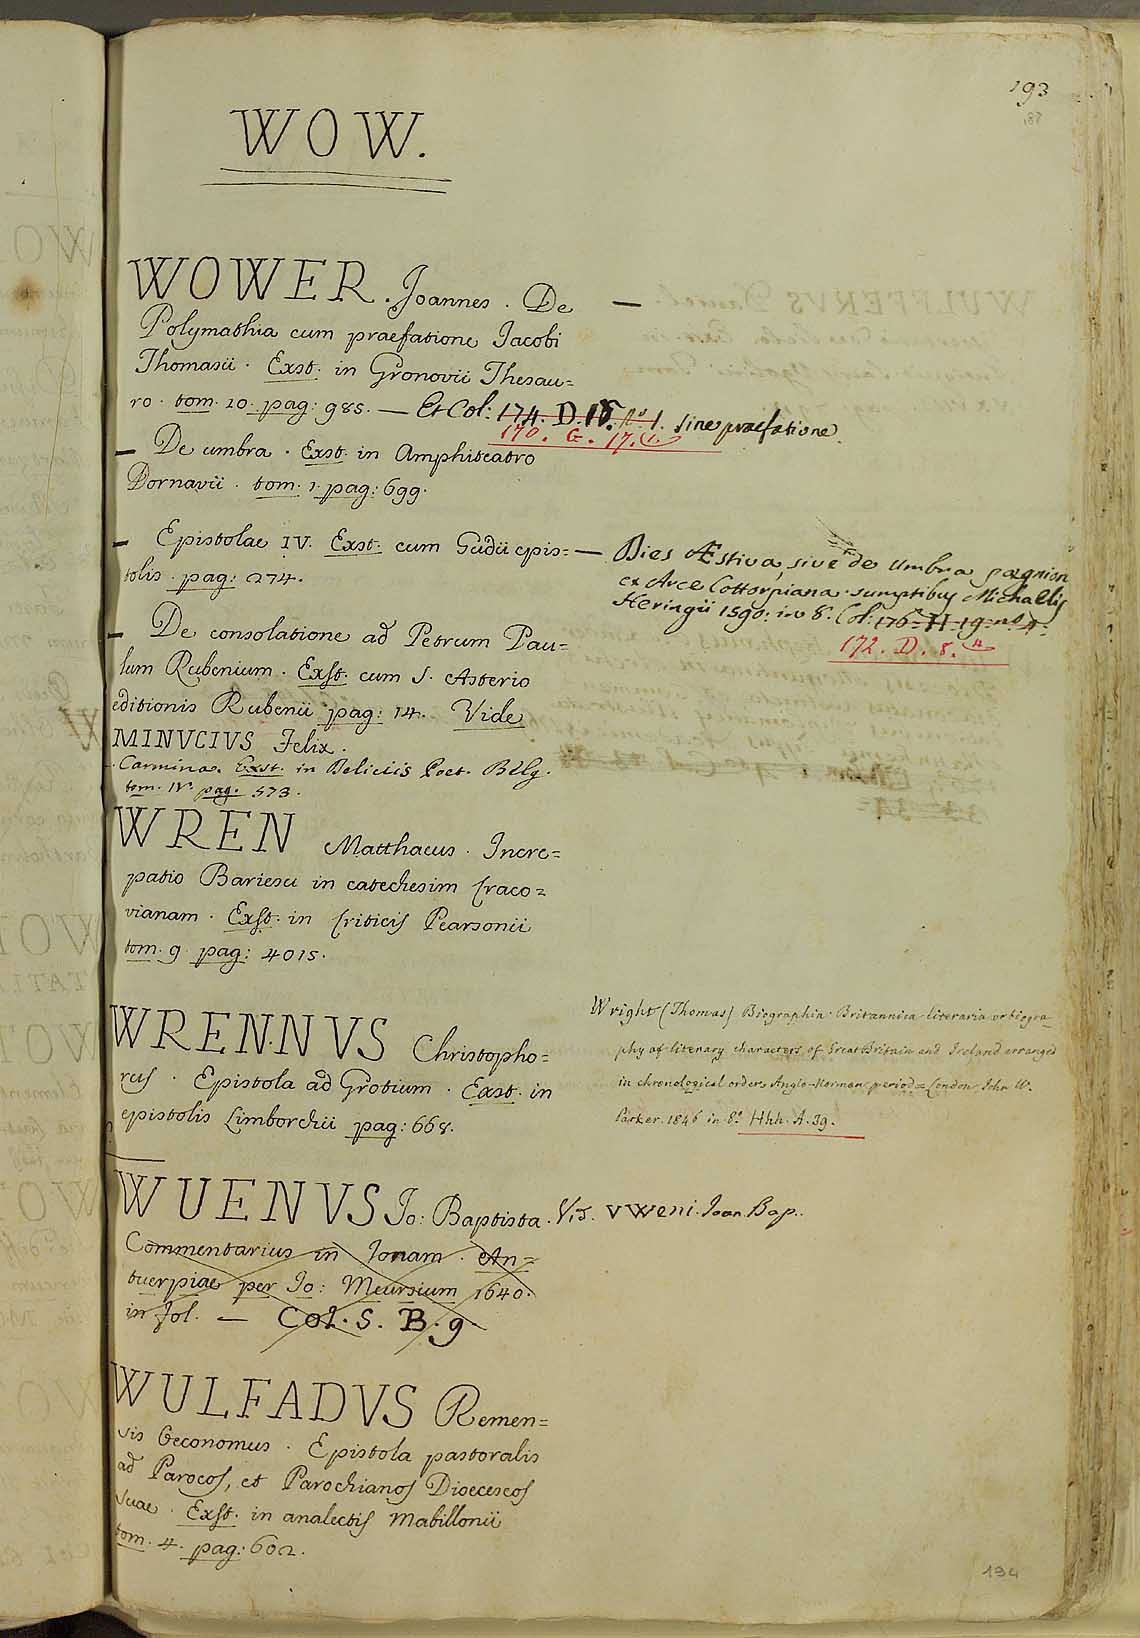 193
WOW.
WOWER. Joannes. De
Polymathia cum praefatione Jacobi
Thomasii. Exst. in Gronovii Thesau=
ro. tom. 10. pag: 985. — Et Col: 174. D. 18. n.º 1. sine praefatione.
170. G. 17.
— De umbra. Exst. in Amphiteatro
Dornavii. tom. 1. pag: 699.
— Epistolae IV. Exst. cum Gudii epis=
tolis. pag: 274.
— De consolatione ad Petrum Pau=
lum Rubenium. Exst. cum S. Asterio
editionis Rubenii pag: 14. Vide
MINVCIVS Felix.
Carmina. Exst. in Deliciis Poet. Belg.
tom. IV. pag. 573.
— Dies Æstiva, sive de Umbra pægnion
ex Arce Gottorpiana. sumptibus Michaelis
Heringii 1590: in 8. Col: 176. H. 19. nº 4.
172. D. 8.
WREN Matthaeus. Incre=
patio Bariesu in catechesim Craco=
vianam. Exst. in Criticis Pearsonii
tom. 9. pag: 4015.
WRENNVS Christopho=
rus. Epistola ad Grotium. Exst. in
epistolis Limborchii pag: 668.
Wright (Thomas) Biographia Britannica literaria or biogra=
phy of literary characters of Great Britain and Ireland arranged
in chronological order. Anglo-Norman period = London John W.
Parker. 1846 in 8.º Hhh. A. 39.
WUENVS Jo: Baptista. Vid. VWeni. Joan. Bap..
Commentarius in Jonam. An=
tuerpiae per Jo: Meursium 1640.
in fol. — Col. S. B. 9
WULFADVS Remen=
sis Oeconomus. Epistola pastoralis
ad Parocos, et Parochianos Dioeceseos
suae. Exst. in analectis Mabillonii
tom. 4. pag: 602.
194